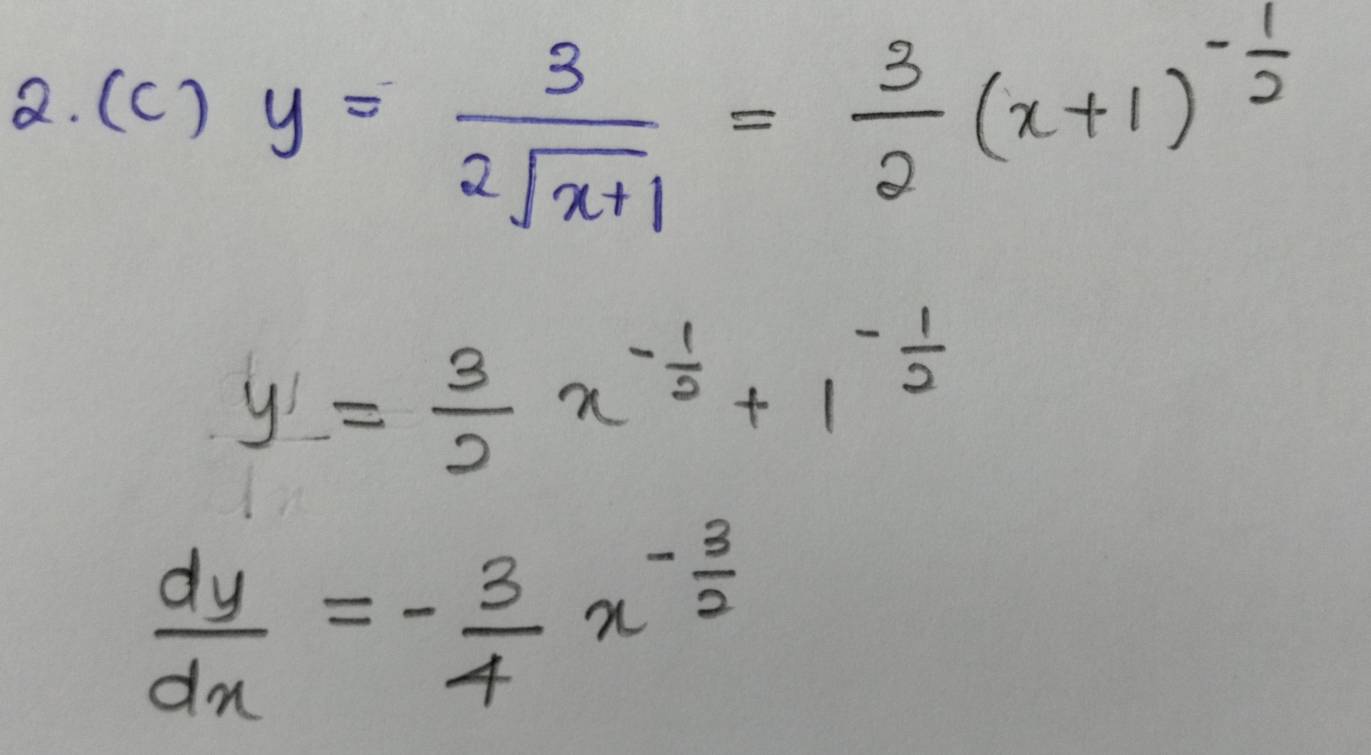 2. (C) y = 3/(2√(x+1)) = 3/2 (x+1)^(-1/2)
y = 3/2 x^(-1/2) + 1^(-1/2)
dy/dx = - 3/4 x^(-3/2)